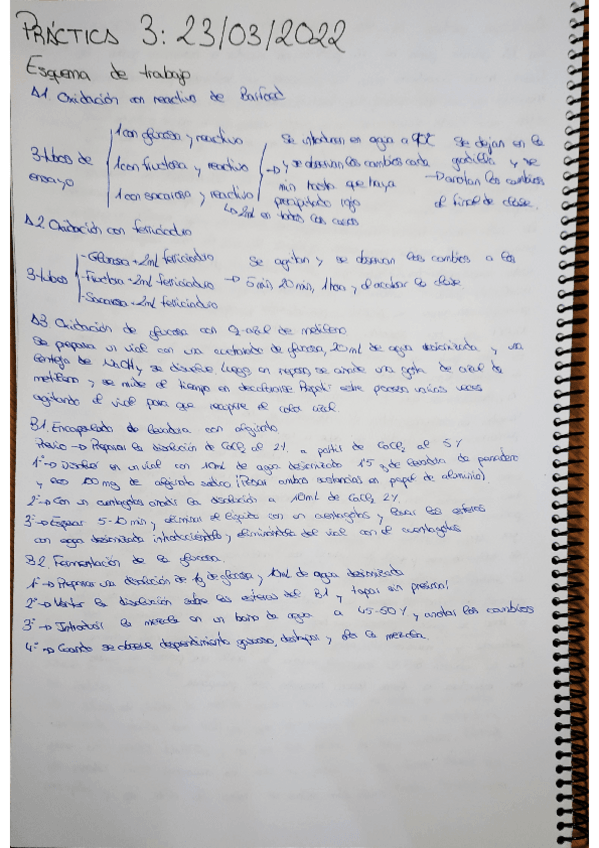 PRÁCTICA 3: 23/03/2022
Esquema de trabajo
A.1 Oxidación con reactivo de Barfoed
1 con glucosa y reactivo
3 tubos de ensayo
1 con fructosa y reactivo
1 con sacarosa y reactivo
→ 2ml en todos los casos
Se introducen en agua a
→ y se observan los cambios cada
min hasta que haya
precipitado rojo
Se dejan en la
gradilla y se
→ anotan los cambios
al final de clase.
A.2 Oxidación con ferricianuro
3 tubos
- Glucosa + 2ml ferricianuro
- Fructosa + 2ml ferricianuro
- Sacarosa + 2ml ferricianuro
Se agitan y se observan los cambios a los
→ 5 min, 20 min, 1 hora y al acabar la clase.
A.3 Oxidación de glucosa con azul de metileno
Se prepara un vial con una cucharada de glucosa, 20 ml de agua desionizada y una
lenteja de NaOH, se disuelve. Luego en reposo, se añade una gota de azul de
metileno y se mide el tiempo en decolorarse. Repetir este proceso varias veces
agitando el vial para que recupere el color azul.
B.1. Encapsulado de levadura con alginato
Previo → Preparar la disolución de CaCl2 al 2% a partir de CaCl2 al 5%
1º → Disolver en un vial con 10ml de agua desionizada 1'5 g de levadura de panadero
y 200 mg de alginato sódico (Pesar ambas sustancias en papel de aluminio)
2º → Con un cuentagotas añadir la disolución a 10ml de CaCl2 2%
3º → Esperar 5-10 min, eliminar el líquido con un cuentagotas y lavar las esferas
con agua desionizada introduciéndola y eliminándola del vial con el cuentagotas
B.2. Fermentación de la glucosa.
1º → Preparar una disolución de 1g de glucosa y 10ml de agua desionizada
2º → Verter la disolución sobre las esferas del B1 y tapar sin presión!
3º → Introducir la mezcla en un baño de agua a 45-50 y anotar los cambios
4º → Cuando se observe desprendimiento gaseoso, destapar y oler la mezcla.